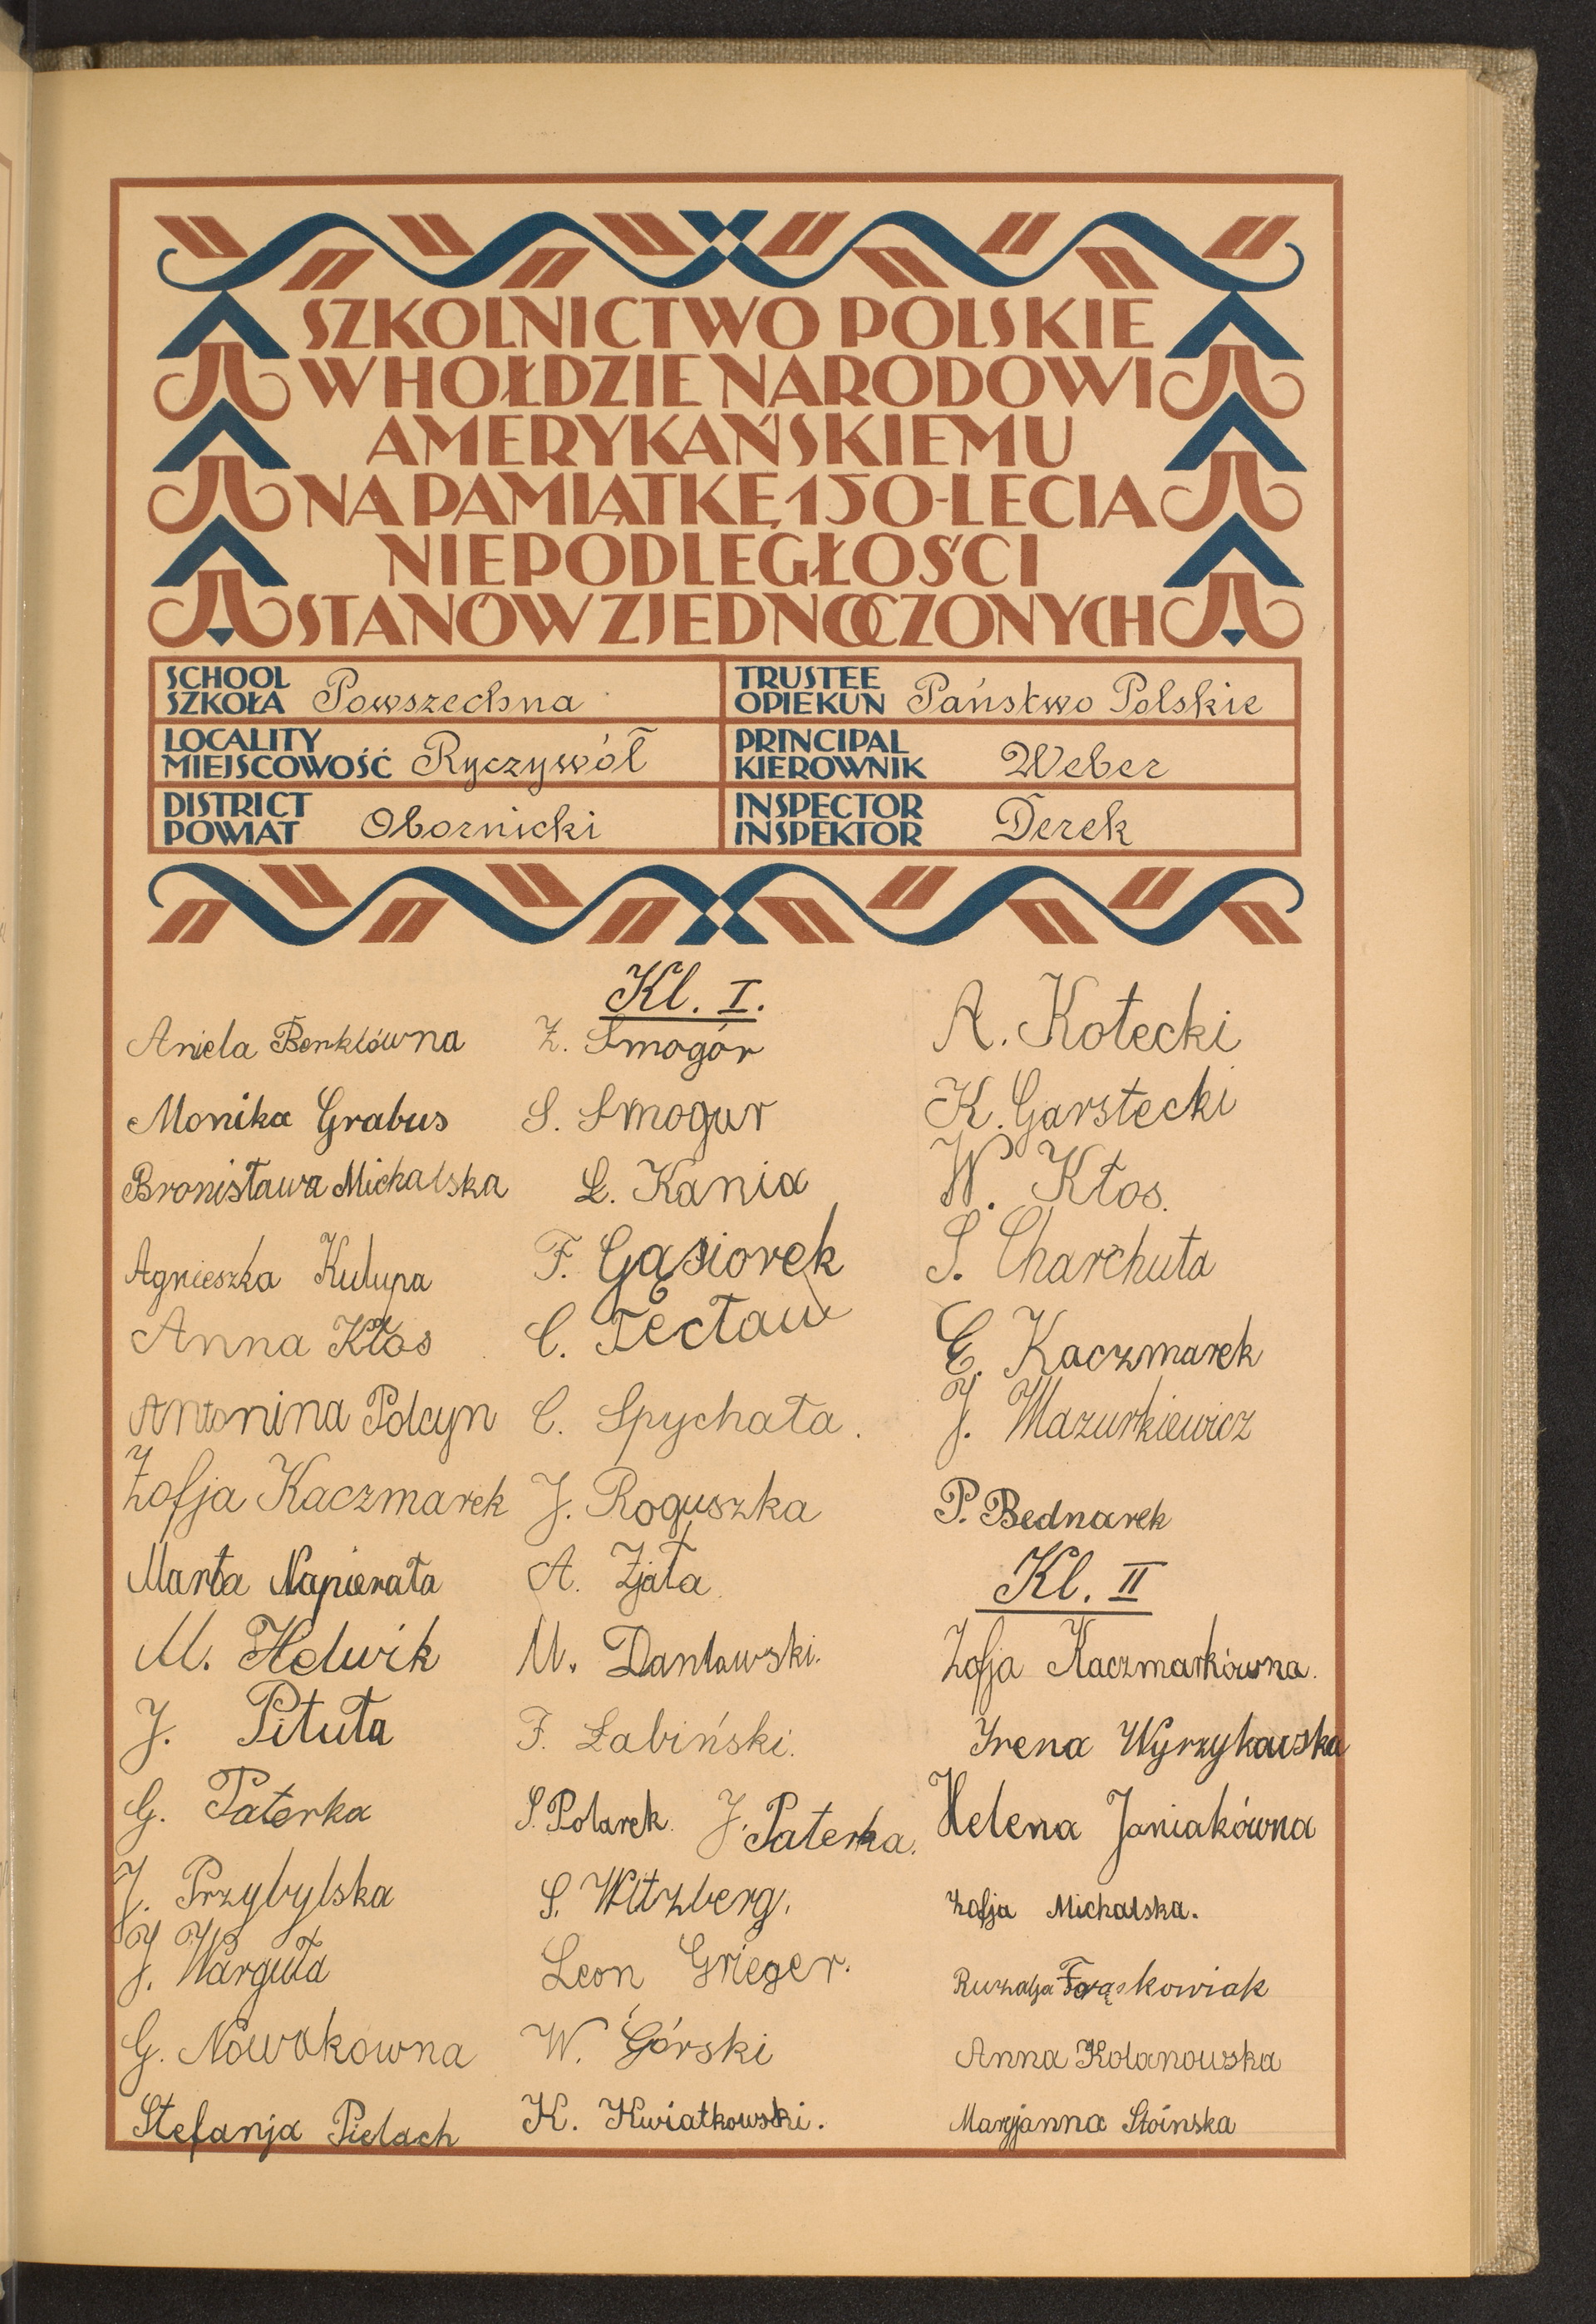 SZKOLNICTWO POLSKIE
W HOŁDZIE NARODOWI
AMERYKAŃSKIEMU
NA PAMIĄTKĘ 150-LECIA
NIEPODLEGŁOŚCI
STANÓW ZJEDNOCZONYCH
SCHOOL
SZKOŁA Powszechna
TRUSTEE
OPIEKUN Państwo Polskie
LOCALITY
MIEJSCOWOŚĆ Ryczywół
PRINCIPAL
KIEROWNIK Weber
DISTRICT
POWIAT Obornicki
INSPECTOR
INSPEKTOR Derek
Kl. I.
Aniela Benklówna
Monika Grabus
Bronisława Michalska
Agnieszka Kulupa
Anna Kłos
Antonina Polcyn
Zofja Kaczmarek
Marta Napierała
M. Helwik
J. Pituła
G. Paterka
J. Przybylska
J. Warguła
G. Nowakowna
Stefanja Pielach
Z. Smogór
S. Smogur
L. Kania
F. Gąsiorek
C. Tęcław
C. Spychała.
J. Roguszka
A. Zjała
M. Danławski.
F. Łabiński.
S. Polarek. J. Paterka.
S. Witzberg.
Leon Grieger.
W. Górski
K. Kwiatkowski.
A. Kotecki
K. Garstecki
W. Kłos.
S. Charchuta
E. Kaczmarek
J. Mazurkiewicz
P. Bednarek
Kl. II
Zofja Kaczmarkówna.
Irena Wyrzykawska
Helena Janiakówna
Zofja Michalska.
kowiak
Anna Kolanowska
Maryjanna Stoinska